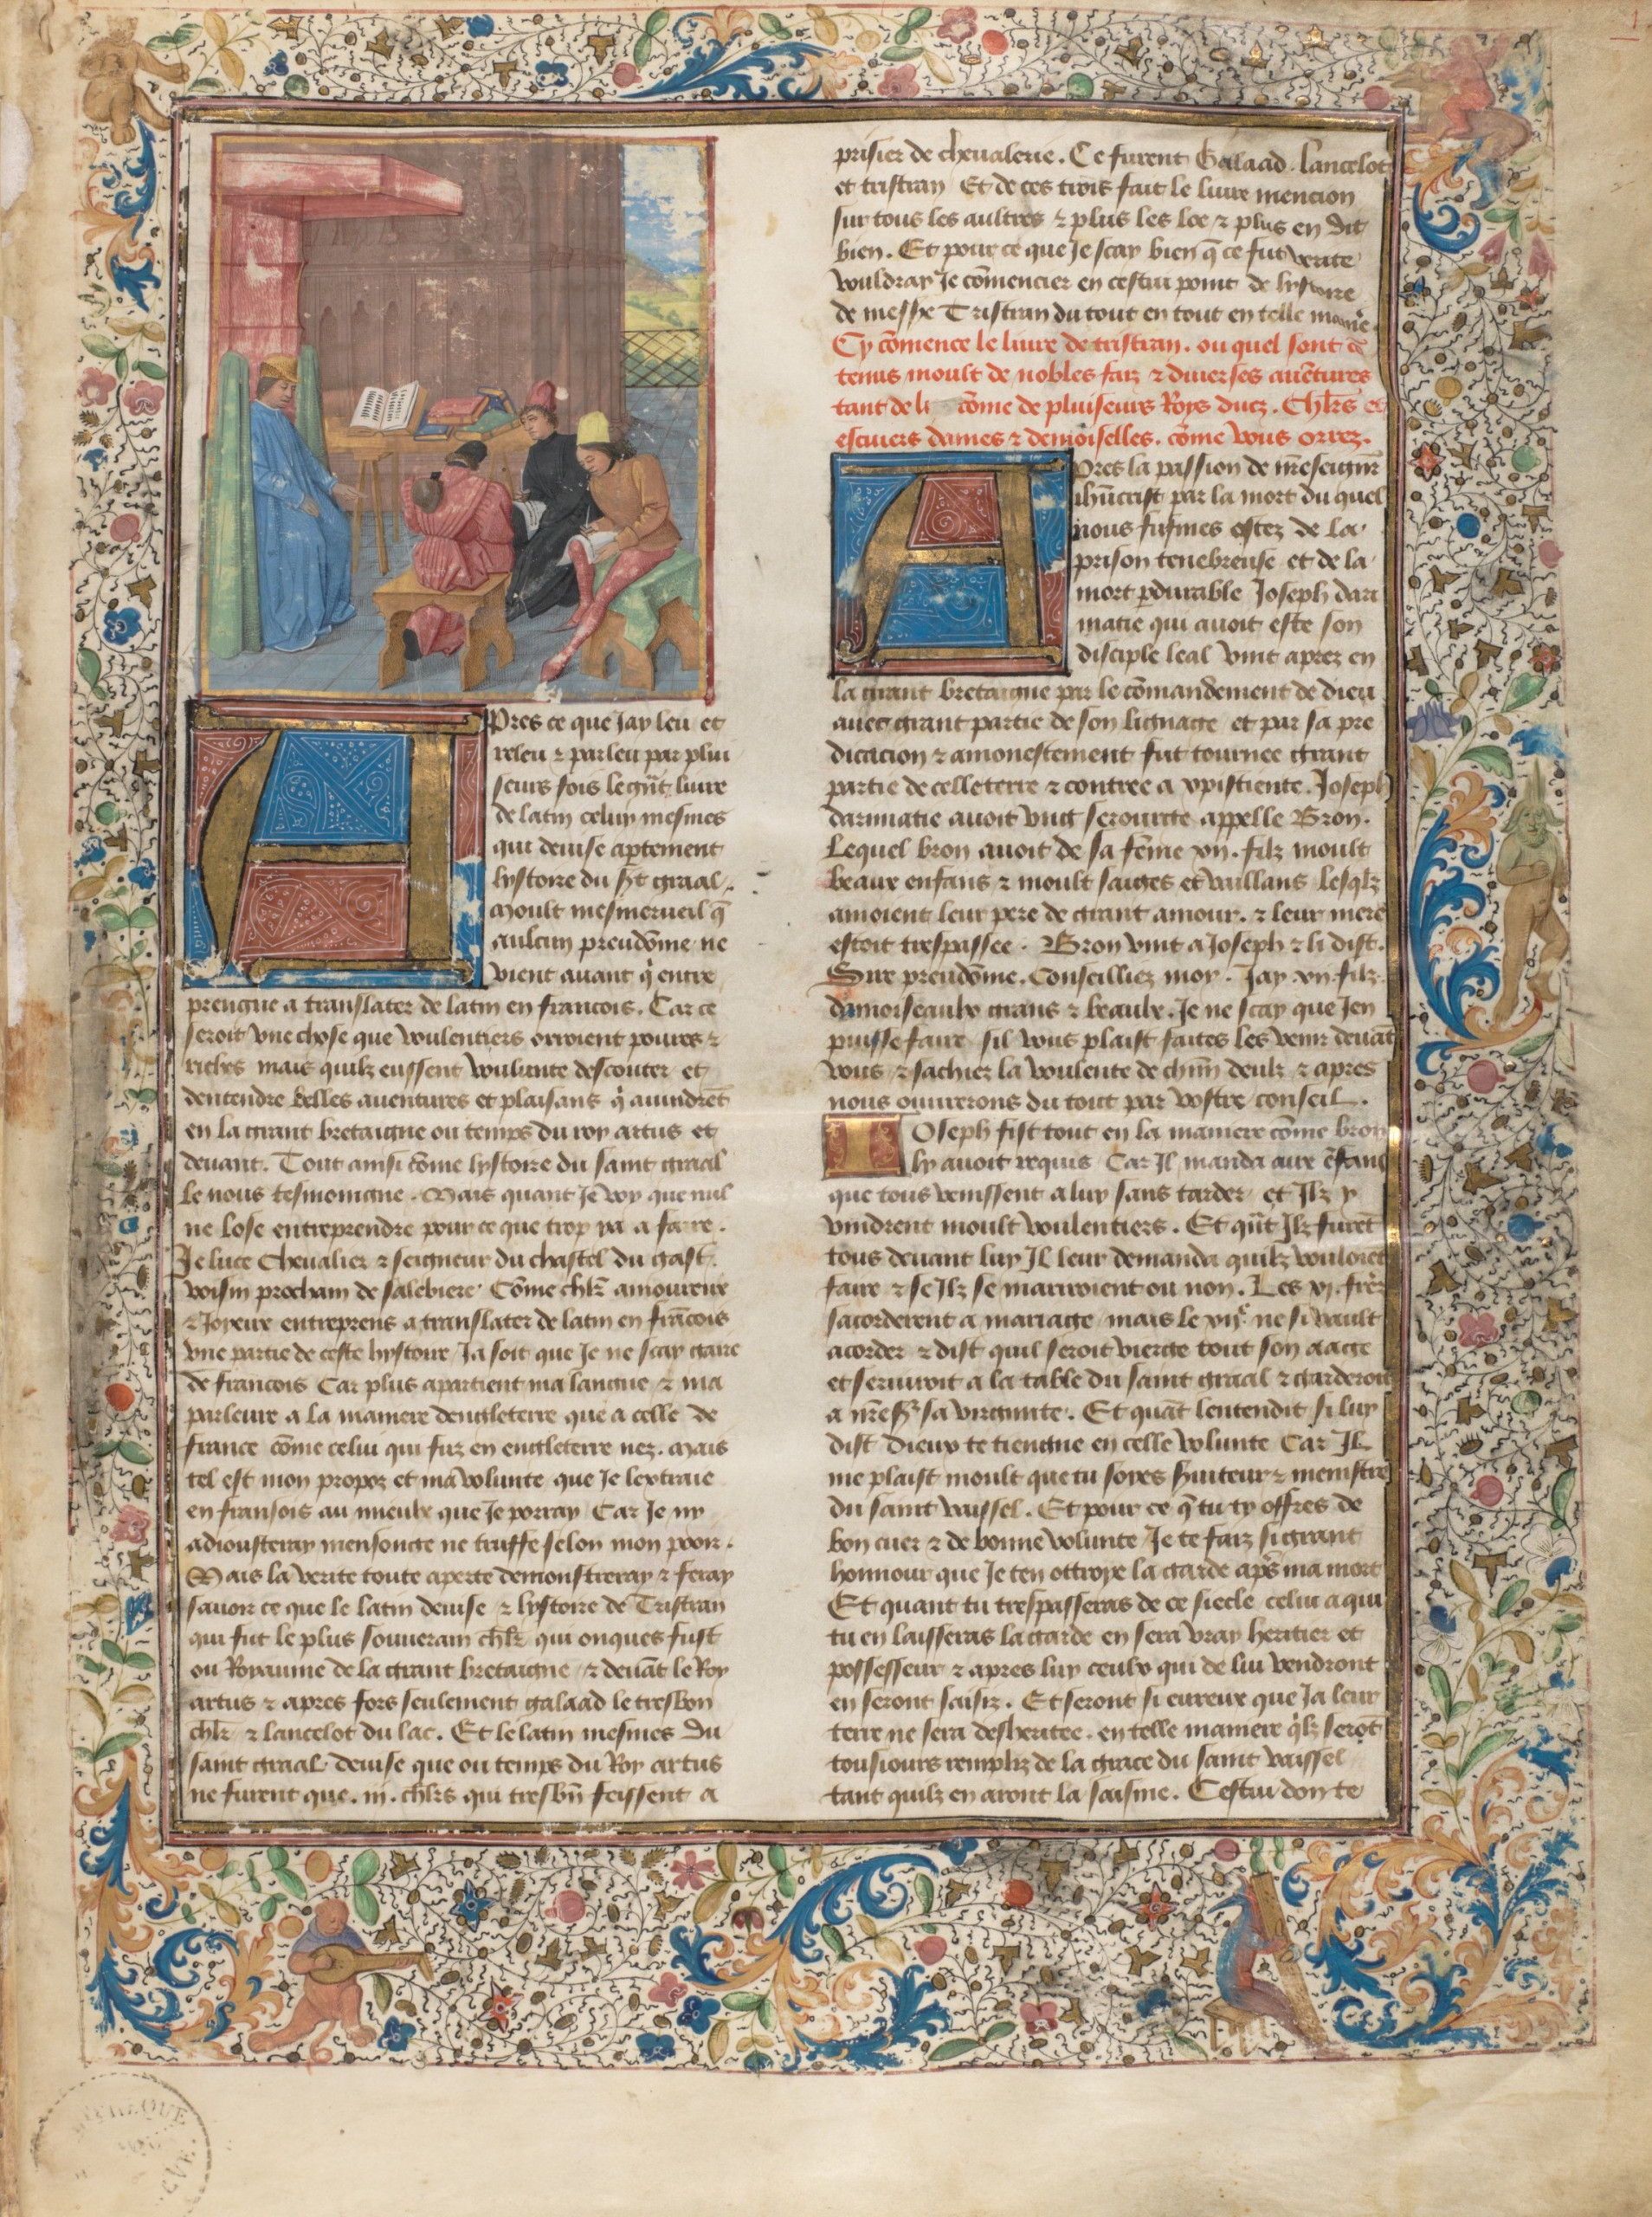 Apres ce que Jay leu et
releu ⁊ parleu par plui
seurs fois le gñt liure
de latin celuy mesmes
qui deuise aptement
lystoire du st graal.
Moult mesmerueil q̃
aulcun preudõme ne
vient auant q̓ entre
prengne a translater de latin en francois. Car ce
seroit vne chose que voulentiers orroient poures ⁊
riches mais quilz eussent voulunte descouter et
dentendre belles auentures et plaisans q̓ auindrẽt
en la grant bretaigne ou temps du roy artus et
deuant. Tout ainsi cõme lystoire du saint graal
le nous tesmoingne. Mais quant Je voy que nul
ne lose entreprendre pour ce que trop ya a faire.
Je luce Cheualier ⁊ seigneur du chastel du gast.
voisin prochain de salebiere Cõme chlr̃ amoureux
⁊ Joyeux entreprens a translater de latin en frãcois
vne partie de ceste hystoire Ja soit que Je ne scay gaire
de francois Car plus apartient ma langue ⁊ ma
parleure a la maniere dengleterre que a celle de
france cõme celui qui fuz en engleterre nez. Mais
tel est mon propoz et ma volunte que Je lextraie
en fransois au mieulx que Je porray Car Je ny
adiousteray mensonge ne truffe selon mon pooir.
Mais la verite toute aperte demonstreray ⁊ feray
sauoir ce que le latin deuise ⁊ lystoire de Tristran
qui fut le plus souuerain chlr̃ qui onques fust
ou Royaume de la grant bretaigne ⁊ deuãt le Roy
artus ⁊ apres fors seulement galaad le tresbon
chlr̃ ⁊ lancelot du lac. Et le latin mesmes du
saint graal deuise que ou temps du Roy artus
ne furent que .iij. chlr̃s qui tresbñ feissent a
prisier de cheualerie. Ce furent Galaad. Lancelot
et tristran Et de ces trois fait le liure mencion
sur tous les aultres ⁊ plus les loe ⁊ plus en dit
bien. Et pour ce que Je scay bien q̃ ce fut verite
vouldray Je cõmencier en cestui point de lystoire
de messe Tristran du tout en tout en telle maniẽ.
Cy cõmence le liure de tristran. ou quel sont cõ
tenus moult de nobles faiz ⁊ diuerses auẽtures
tant de li cõme de pluiseurs Roys ducz. Chlr̃s et
escuiers dames ⁊ demoiselles. cõme vous orrez.
Apres la passion de nr̃eseignr̃
ihũcrist par la mort du quel
nous fusmes ostez de la
prison tenebreuse et de la
mort p̱durable Joseph dari
matie qui auoit este son
disciple leal vint aprez en
la grant bretaigne par le cõmandement de dieu
auec grant partie de son lignage et par sa pre
dicacion ⁊ amonestement fut tournee grant
partie de celle terre ⁊ contree a xpistiente. Joseph
darimatie auoit vng serourge appelle Bron.
Lequel bron auoit de sa fẽme xij. filz moult
beaux enfans ⁊ moult saiges et vaillans lesq̃lz
amoient leur pere de grant amour. ⁊ leur mere
estoit trespassee. Bron vint a Joseph ⁊ li dist.
Sire preudõme. Conseilliez moy. Jay .xij. filz
damoiseaulx grans ⁊ beaulx. Je ne scay que Jen
puisse faire sil vous plaist faites les venir deuãt
vous ⁊ sachiez la voulente de chũn deulx ⁊ apres
nous ouurerons du tout par vostre conseil.
Joseph fist tout en la maniere cõme bron
ly auoit requis Car Il manda aux ẽfans
que tous venissent a luy sans tarder et Ilz y
vindrent moult voulentiers. Et qũt Ilz furẽt
tous deuant luy Il leur demanda quilz vouloiẽt
faire ⁊ se Ilz se mariroient ou non. Les xj. frẽs
sacorderent a mariage mais le xijᵉ. ne si vault
acorder ⁊ dist quil seroit vierge tout son aage
et seruiroit a la table du saint graal ⁊ garderoit
a nr̃e sr̃ sa virginite. Et quãt lentendit si luy
dist Dieux te tiengne en celle volunte Car Il
me plaist moult que tu soyes s̃uiteur ⁊ menistre
du saint vaissel. Et pour ce q̃ tu ty offres de
bon cuer ⁊ de bonne volunte Je te faiz si grant
honnour que Je ten ottroye la garde apr̃s ma mort
Et quant tu trespasseras de ce siecle celui a qui
tu en laisseras la garde en sera vray heritier et
possesseur ⁊ apres luy ceulx qui de lui vendront
en seront saisiz. Et seront si eureux que Ja leur
terre ne sera desheritee. en telle maniere q̓lz serõt
tousiours rempliz de la grace du saint vaissel
tant quilz en aront la saisine. Cestui don te